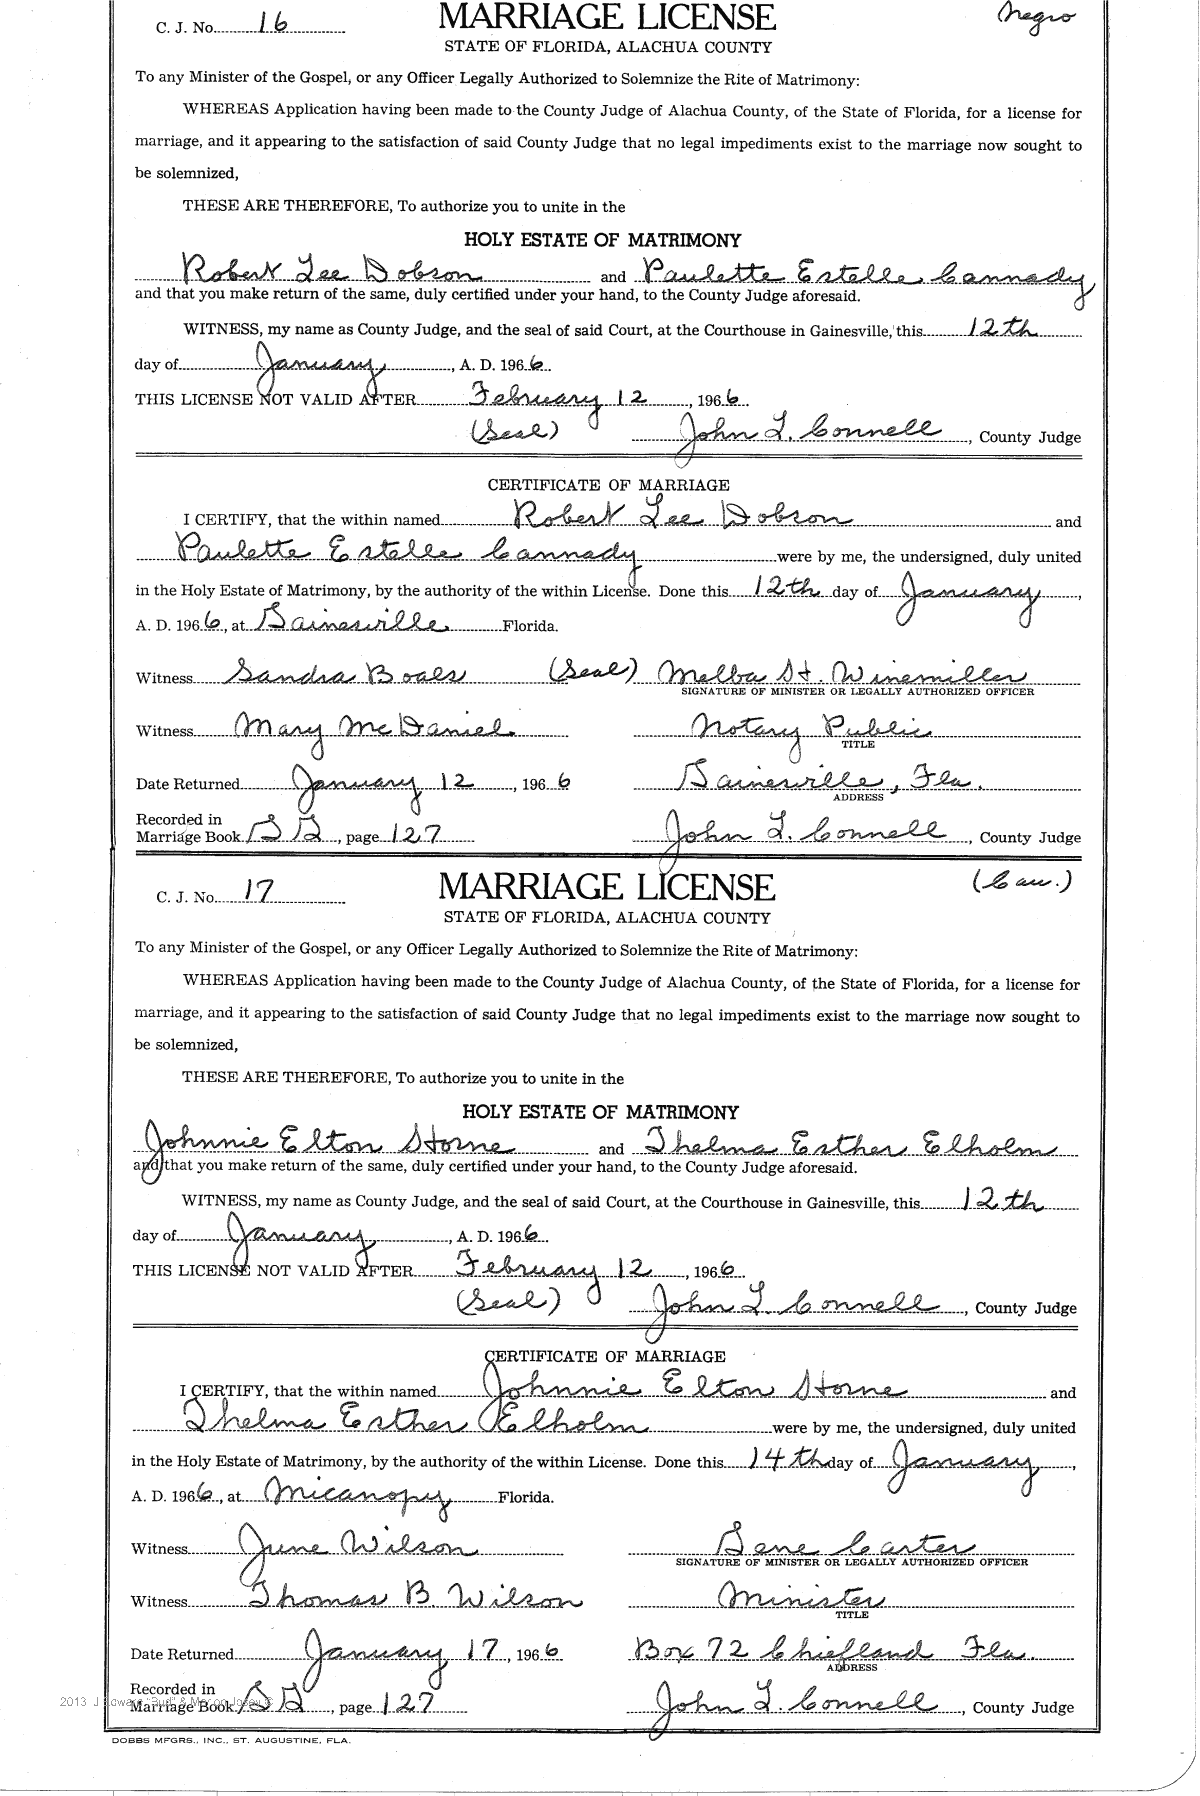 C. J. No. 16 MARRIAGE LICENSE Negro
STATE OF FLORIDA, ALACHUA COUNTY
To any Minister of the Gospel, or any Officer Legally Authorized to Solemnize the Rite of Matrimony:
WHEREAS Application having been made to the County Judge of Alachua County, of the State of Florida, for a license for
marriage, and it appearing to the satisfaction of said County Judge that no legal impediments exist to the marriage now sought to
be solemnized,
THESE ARE THEREFORE, To authorize you to unite in the
HOLY ESTATE OF MATRIMONY
Robert Lee Dobson and Paulette Estelle Cannady
and that you make return of the same, duly certified under your hand, to the County Judge aforesaid.
WITNESS, my name as County Judge, and the seal of said Court, at the Courthouse in Gainesville, this 12th
day of January, A. D. 1966
THIS LICENSE NOT VALID AFTER February 12, 1966
(Seal) John L. Connell, County Judge
CERTIFICATE OF MARRIAGE
I CERTIFY, that the within named Robert Lee Dobson and
Paulette Estelle Cannady were by me, the undersigned, duly united
in the Holy Estate of Matrimony, by the authority of the within License. Done this 12th day of January,
A. D. 1966, at Gainesville Florida.
Witness Sandra Boals (Seal) Melba St. Winemiller
SIGNATURE OF MINISTER OR LEGALLY AUTHORIZED OFFICER
Witness Mary McDaniel Notary Public
TITLE
Date Returned January 12, 1966 Gainesville, Fla.
ADDRESS
Recorded in
Marriage Book, page 127 John L. Connell, County Judge
C. J. No. 17 MARRIAGE LICENSE (Cau.)
STATE OF FLORIDA, ALACHUA COUNTY
To any Minister of the Gospel, or any Officer Legally Authorized to Solemnize the Rite of Matrimony:
WHEREAS Application having been made to the County Judge of Alachua County, of the State of Florida, for a license for
marriage, and it appearing to the satisfaction of said County Judge that no legal impediments exist to the marriage now sought to
be solemnized,
THESE ARE THEREFORE, To authorize you to unite in the
HOLY ESTATE OF MATRIMONY
Johnnie Elton Horne and Thelma Esther Elholm
and that you make return of the same, duly certified under your hand, to the County Judge aforesaid.
WITNESS, my name as County Judge, and the seal of said Court, at the Courthouse in Gainesville, this 12th
day of January, A. D. 1966
THIS LICENSE NOT VALID AFTER February 12, 1966
(Seal) John L Connell, County Judge
CERTIFICATE OF MARRIAGE
I CERTIFY, that the within named Johnnie Elton Horne and
Thelma Esther Elholm were by me, the undersigned, duly united
in the Holy Estate of Matrimony, by the authority of the within License. Done this 14th day of January,
A. D. 1966, at Micanopy Florida.
Witness June Wilson Gene Carter
SIGNATURE OF MINISTER OR LEGALLY AUTHORIZED OFFICER
Witness Thomas B. Wilson Minister
TITLE
Date Returned January 17, 1966 Box 72 Chiefland Fla.
ADDRESS
Recorded in
Marriage Book, page 127 John L. Connell, County Judge
DOBBS MFGRS., INC., ST. AUGUSTINE, FLA.